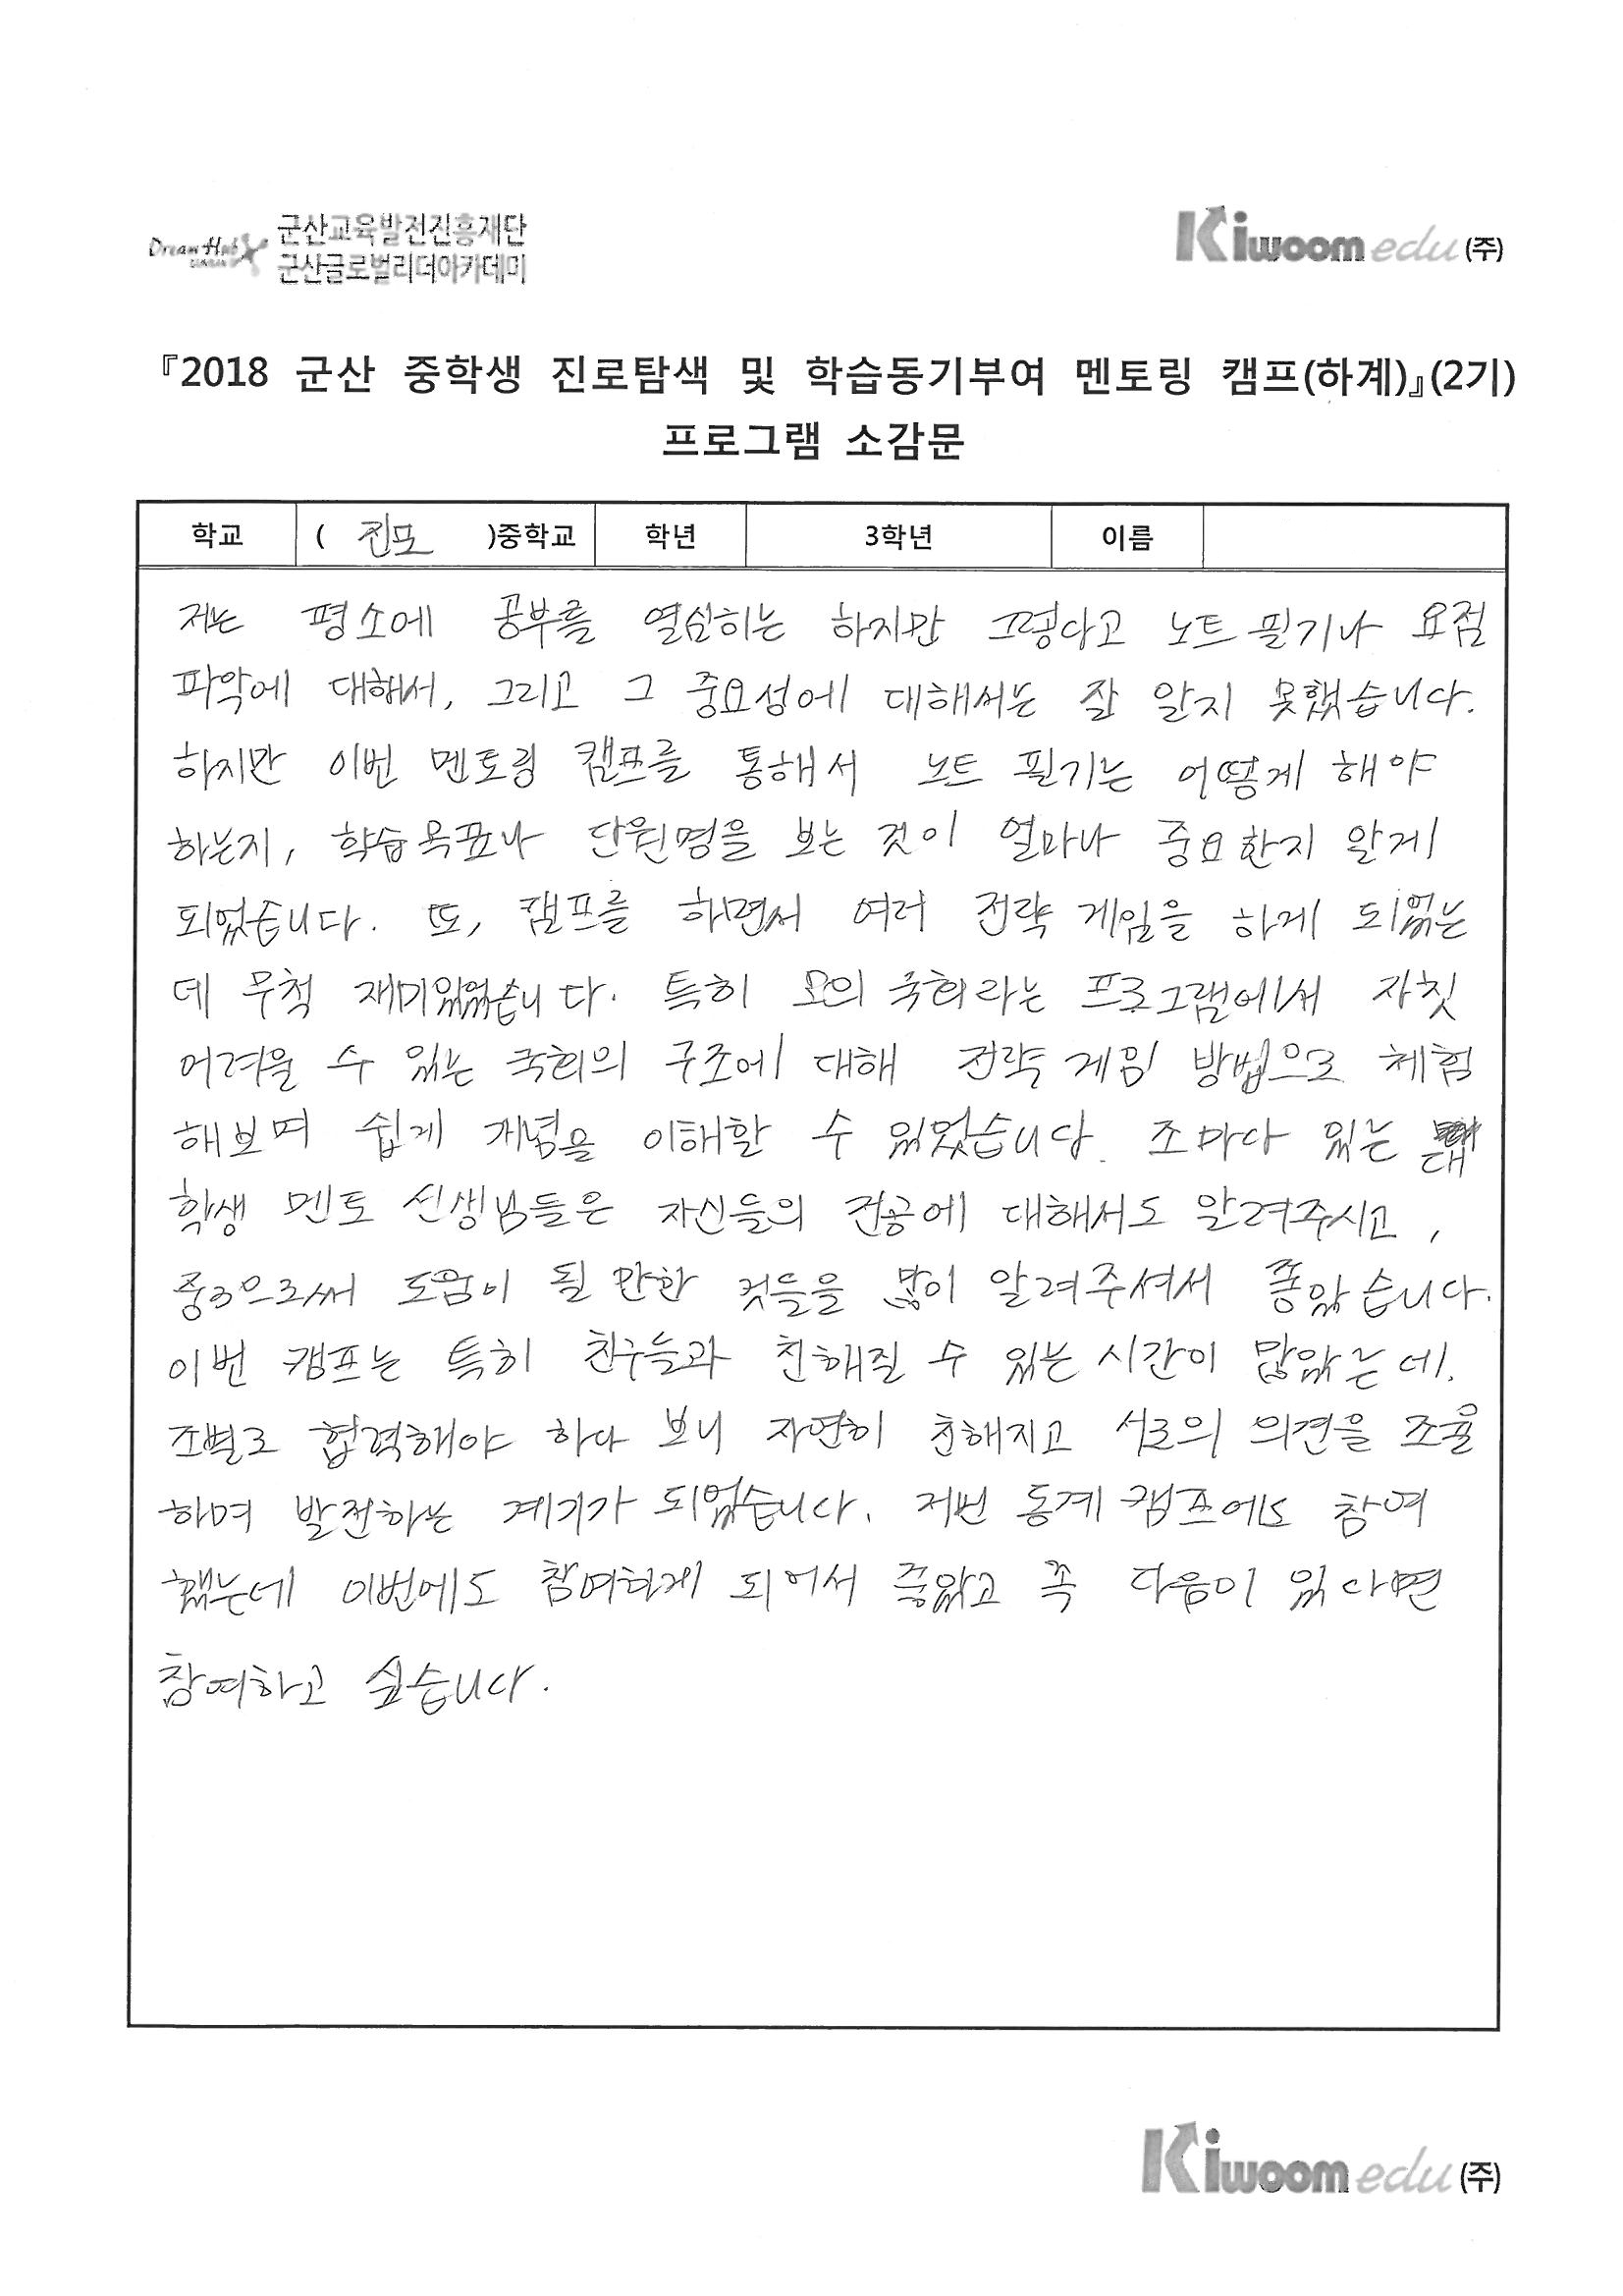 Dream Hub 군산교육발전진흥재단
군산글로벌리더아카데미
Kiwoom edu (주)
『2018 군산 중학생 진로탐색 및 학습동기부여 멘토링 캠프(하계)』(2기)
프로그램 소감문
학교 ( 진포 )중학교 학년 3학년 이름
저는 평소에 공부를 열심히는 하지만 그렇다고 노트 필기나 요점
파악에 대해서, 그리고 그 중요성에 대해서는 잘 알지 못했습니다.
하지만 이번 멘토링 캠프를 통해서 노트 필기는 어떻게 해야
하는지, 학습목표나 단원명을 보는 것이 얼마나 중요한지 알게
되었습니다. 또, 캠프를 하면서 여러 전략 게임을 하게 되었는
데 무척 재미있었습니다. 특히 모의 국회라는 프로그램에서 자칫
어려울 수 있는 국회의 구조에 대해 전략 게임 방법으로 체험
해보며 쉽게 개념을 이해할 수 있었습니다. 조마다 있는 대
학생 멘토 선생님들은 자신들의 전공에 대해서도 알려주시고,
중3으로써 도움이 될 만한 것들을 많이 알려주셔서 좋았습니다.
이번 캠프는 특히 친구들과 친해질 수 있는 시간이 많았는데,
조별로 협력해야 하다 보니 자연히 친해지고 서로의 의견을 조율
하며 발전하는 계기가 되었습니다. 저번 동계 캠프에도 참여
했는데 이번에도 참여하게 되어서 좋았고 꼭 다음이 있다면
참여하고 싶습니다.
Kiwoom edu (주)